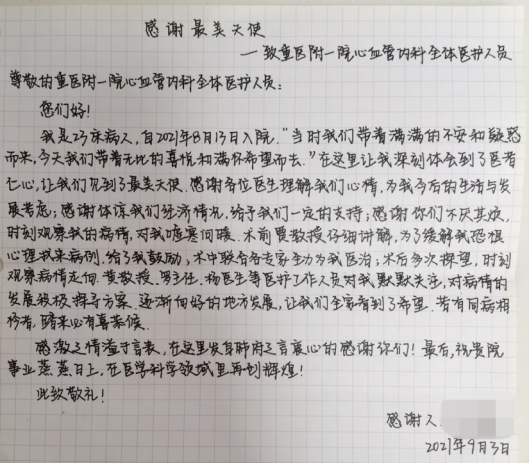 感谢最美天使
—致重医附一院心血管内科全体医护人员
尊敬的重医附一院心血管内科全体医护人员:
您们好!
我是23床病人,自2021年8月13日入院。"当时我们带着满满的不安和疑惑
而来,今天我们带着无比的喜悦和满怀希望而去。"在这里让我深刻体会到了医者
仁心,让我们见到了最美天使。感谢各位医生理解我们心情,为我今后的生活与发
展考虑;感谢体谅我们经济情况,给予我们一定的支持;感谢你们不厌其烦,
时刻观察我的病情,对我嘘寒问暖。术前黄教授仔细讲解,为了缓解我恐惧
心理找来病例,给予我鼓励;术中联合各专家全力为我医治;术后多次探望,时刻
观察病情走向。黄教授、罗主任、杨医生等医护工作人员对我默默关注,对病情的
发展积极探寻方案。逐渐向好的地方发展,让我们全家看到了希望。若有同病相
怜者,踏来必有喜茶候。
感激之情溢于言表,在这里发自肺腑之言衷心的感谢你们!最后,祝贵院
事业蒸蒸日上,在医学科学领域里再创辉煌!
此致敬礼!
感谢人
2021年9月3日